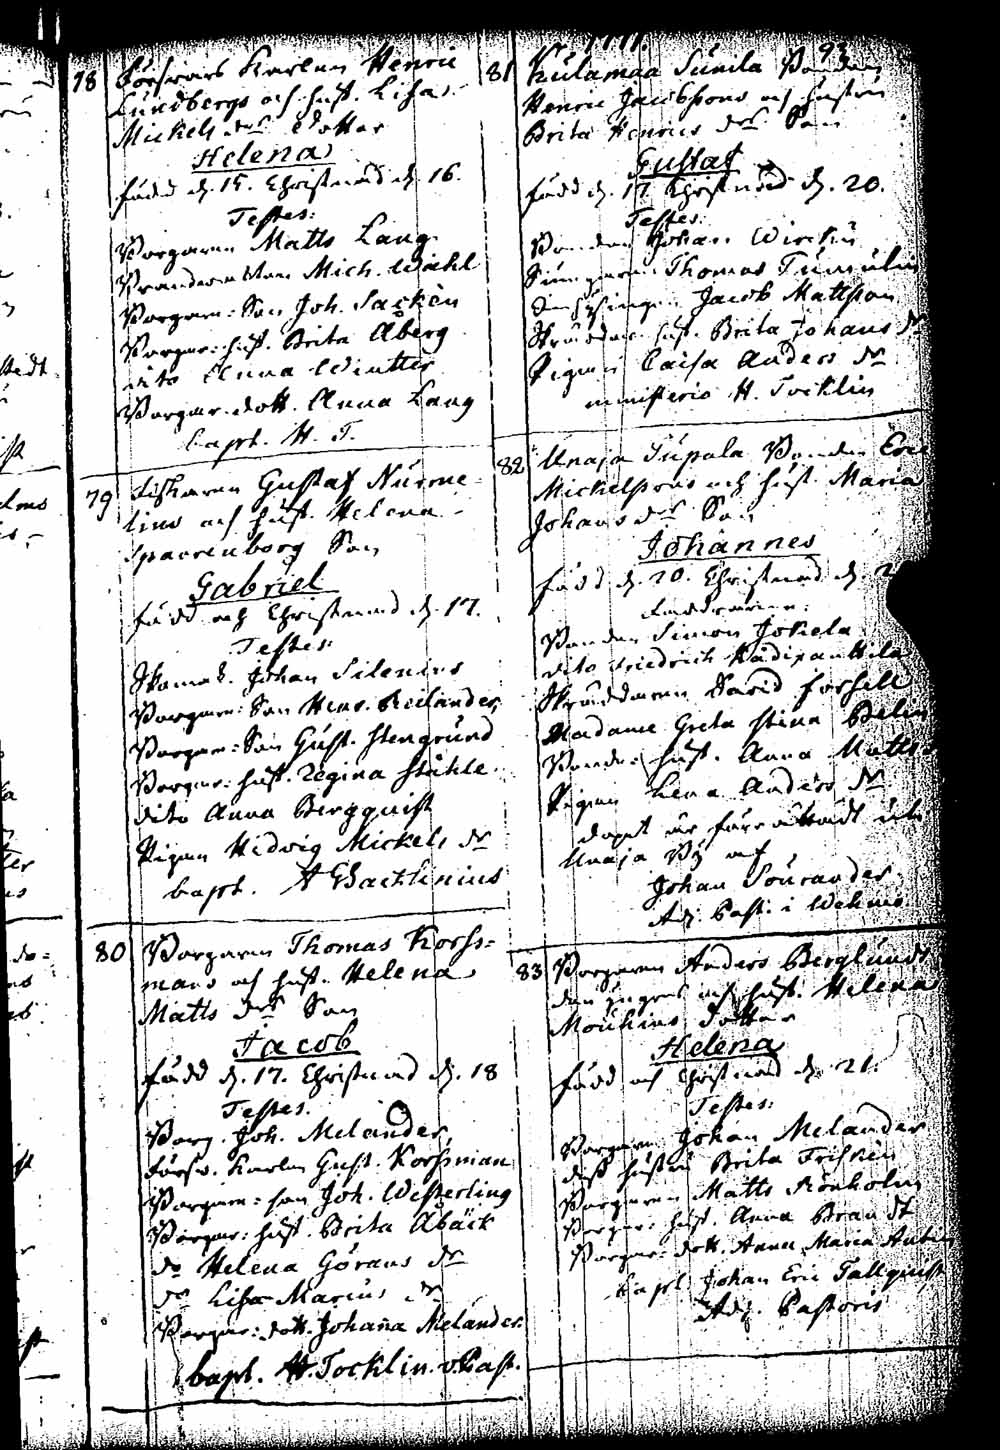 93
78
Försvars Karlen Henric
Lundbergs och hust. Lisa
Mickels dr Dotter
Helena
född d. 15. Christnad d. 16.
Testes:
Borgaren Matts Lang
Mich. Wahl
Borgare: Son Joh. Sackén
Borgar: hust. Brita Åberg
dito Anna Winter
Borgar. dott. Anna Lang
bapt. H. T.
79
Fiskaren Gustaf Nurme-
lins och hust. Helena
Sparrenborg Son
Gabriel
född och Christnad d. 17.
Testes:
Johan Silenius
Borgare: Son Henr. Reilander
Borgar: Son Gust. Stengrund
Borgar: hust. Regina Ståhle
dito Anna Bergquist
Pigan Hedvig Mickels dr
bapt. A Backlinius
80
Borgaren Thomas Korss=
mans och hust. Helena
Matts dr Son
Jacob
född d. 17. Christnad d. 18
Testes.
Borg. Joh. Melander
Försv. Karlen Gust. Korssman
Borgare: son Joh. Westerling
Borgar: hust. Brita Åbäck
do Helena Görans dr
do Lisa Marius dr
Borgar: dott. Johanna Melander
bapt. H. Tocklin. v. Past.
81
Kulamaa Sunila Bonden
Henric Jacobssons och hustru
Brita Henrics dr Son
Gustaf
född d. 17 Christnad d. 20.
Testes:
Bonden Johan
Thomas
Jacob Mattsson
hust. Brita Johans dr
Pigan Caisa Anders dr
ministerio H. Tocklin
82
Unaja Supala Bonden Eric
Mickelssons och hust. Maria
Johans dr Son
Johannes
född d. 20. Christnad d.
Faddrarne:
Bonden Simon Jokela
dito Friedrich
Skräddaren David Forsell
Madame Greta Stina
Bonde hust. Anna Matts
Pigan Lena Anders dr
dopet är förrättadt uti
Unaja By af
Johan Sourander
Adj. Past. i Wehmo
83
Borgaren Anders Berglunds
och hust. Helena
Dotter
Helena
född och Christnad d. 21.
Testes:
Borgaren Johan Melander
dess hustru Brita Friskén
Borgaren Matts Rönholm
Borgar: hust. Anna Brandt
Borgar: dott. Anna Maria
bapt. Johan Eric Tallquist
Adj. Pastoris